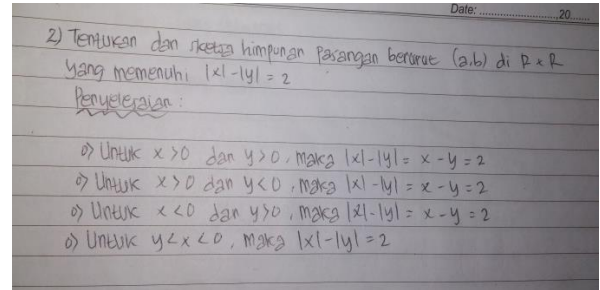 Date: ........................20.......
2) Tentukan dan sketsa himpunan Pasangan berurut (a,b) di R x R
yang memenuhi |x| - |y| = 2
Penyelesaian :
o) Untuk x >0 dan y >0, maka |x| - |y| = x - y = 2
o) Untuk x >0 dan y <0, maka |x| - |y| = x - y = 2
o) Untuk x <0 dan y >0, maka |x| - |y| = x - y = 2
o) Untuk y < x < 0, maka |x| - |y| = 2